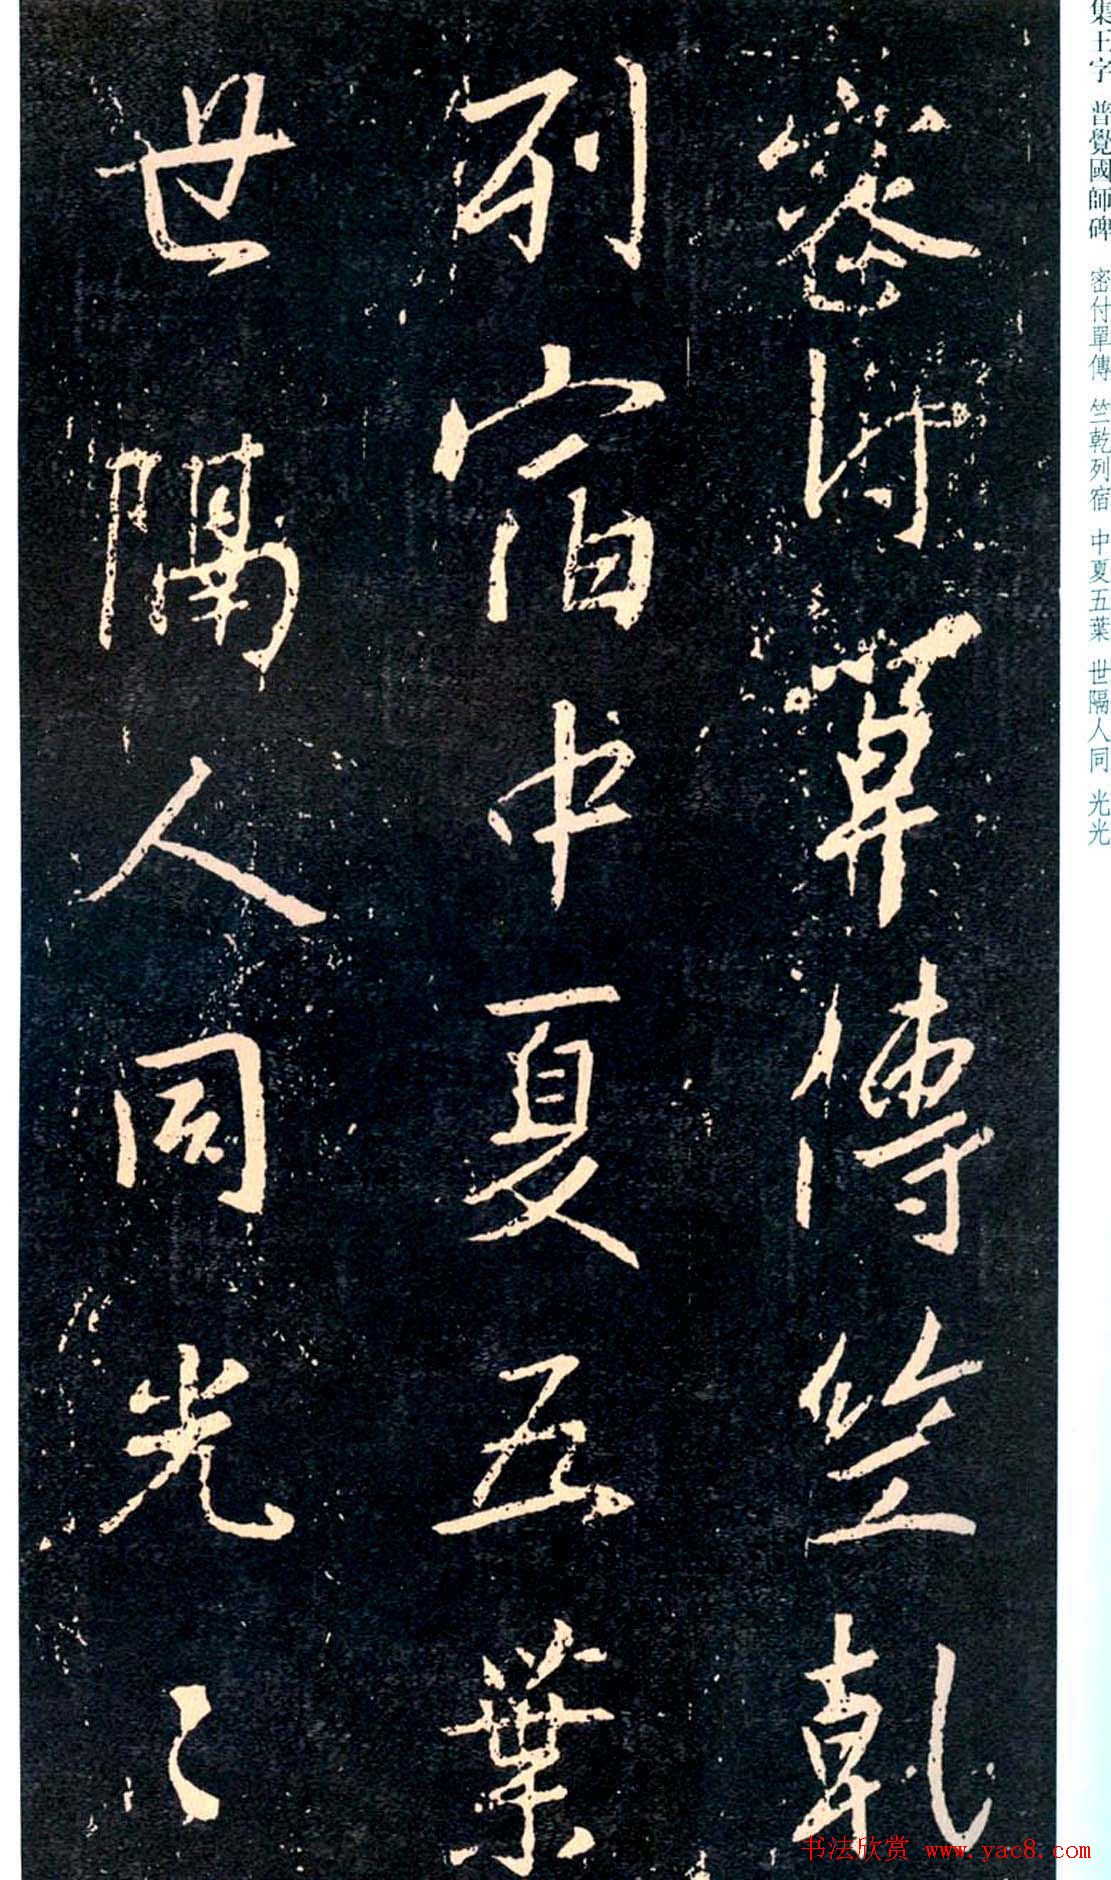 集王字 普覺國師碑 密付單傳 竺乾列宿 中夏五葉 世隔人同 光光
密付單傳竺乾
列宿中夏五葉
世隔人同光〻
书法欣赏 www.yac8.com